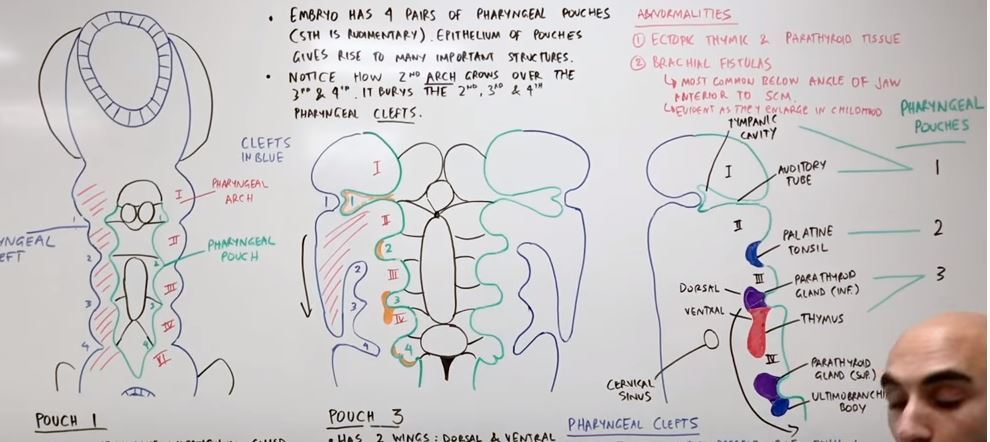 • EMBRYO HAS 4 PAIRS OF PHARYNGEAL POUCHES
(5TH IS RUDIMENTARY). EPITHELIUM OF POUCHES
GIVES RISE TO MANY IMPORTANT STRUCTURES.
• NOTICE HOW 2ND ARCH GROWS OVER THE
3RD & 4TH. IT BURYS THE 2ND, 3RD & 4TH
PHARYNGEAL CLEFTS.
ABNORMALITIES
① ECTOPIC THYMIC & PARATHYROID TISSUE
② BRACHIAL FISTULAS
↳ MOST COMMON BELOW ANGLE OF JAW
ANTERIOR TO SCM.
↳ EVIDENT AS THEY ENLARGE IN CHILDHOOD
PHARYNGEAL
POUCHES
1
2
3
CLEFTS
IN BLUE
PHARYNGEAL
ARCH
PHARYNGEAL
POUCH
YNGEAL
EFT
I
II
III
IV
VI
1
2
3
4
1
2
3
4
I
II
III
IV
1
2
3
4
1
2
3
4
TYMPANIC
CAVITY
I
AUDITORY
TUBE
II
PALATINE
TONSIL
III
DORSAL
PARATHYROID
GLAND (INF.)
VENTRAL
THYMUS
IV
PARATHYROID
GLAND (SUP.)
ULTIMOBRANCHI
BODY
CERVICAL
SINUS
POUCH 1
POUCH 3
• HAS 2 WINGS: DORSAL & VENTRAL
PHARYNGEAL CLEFTS